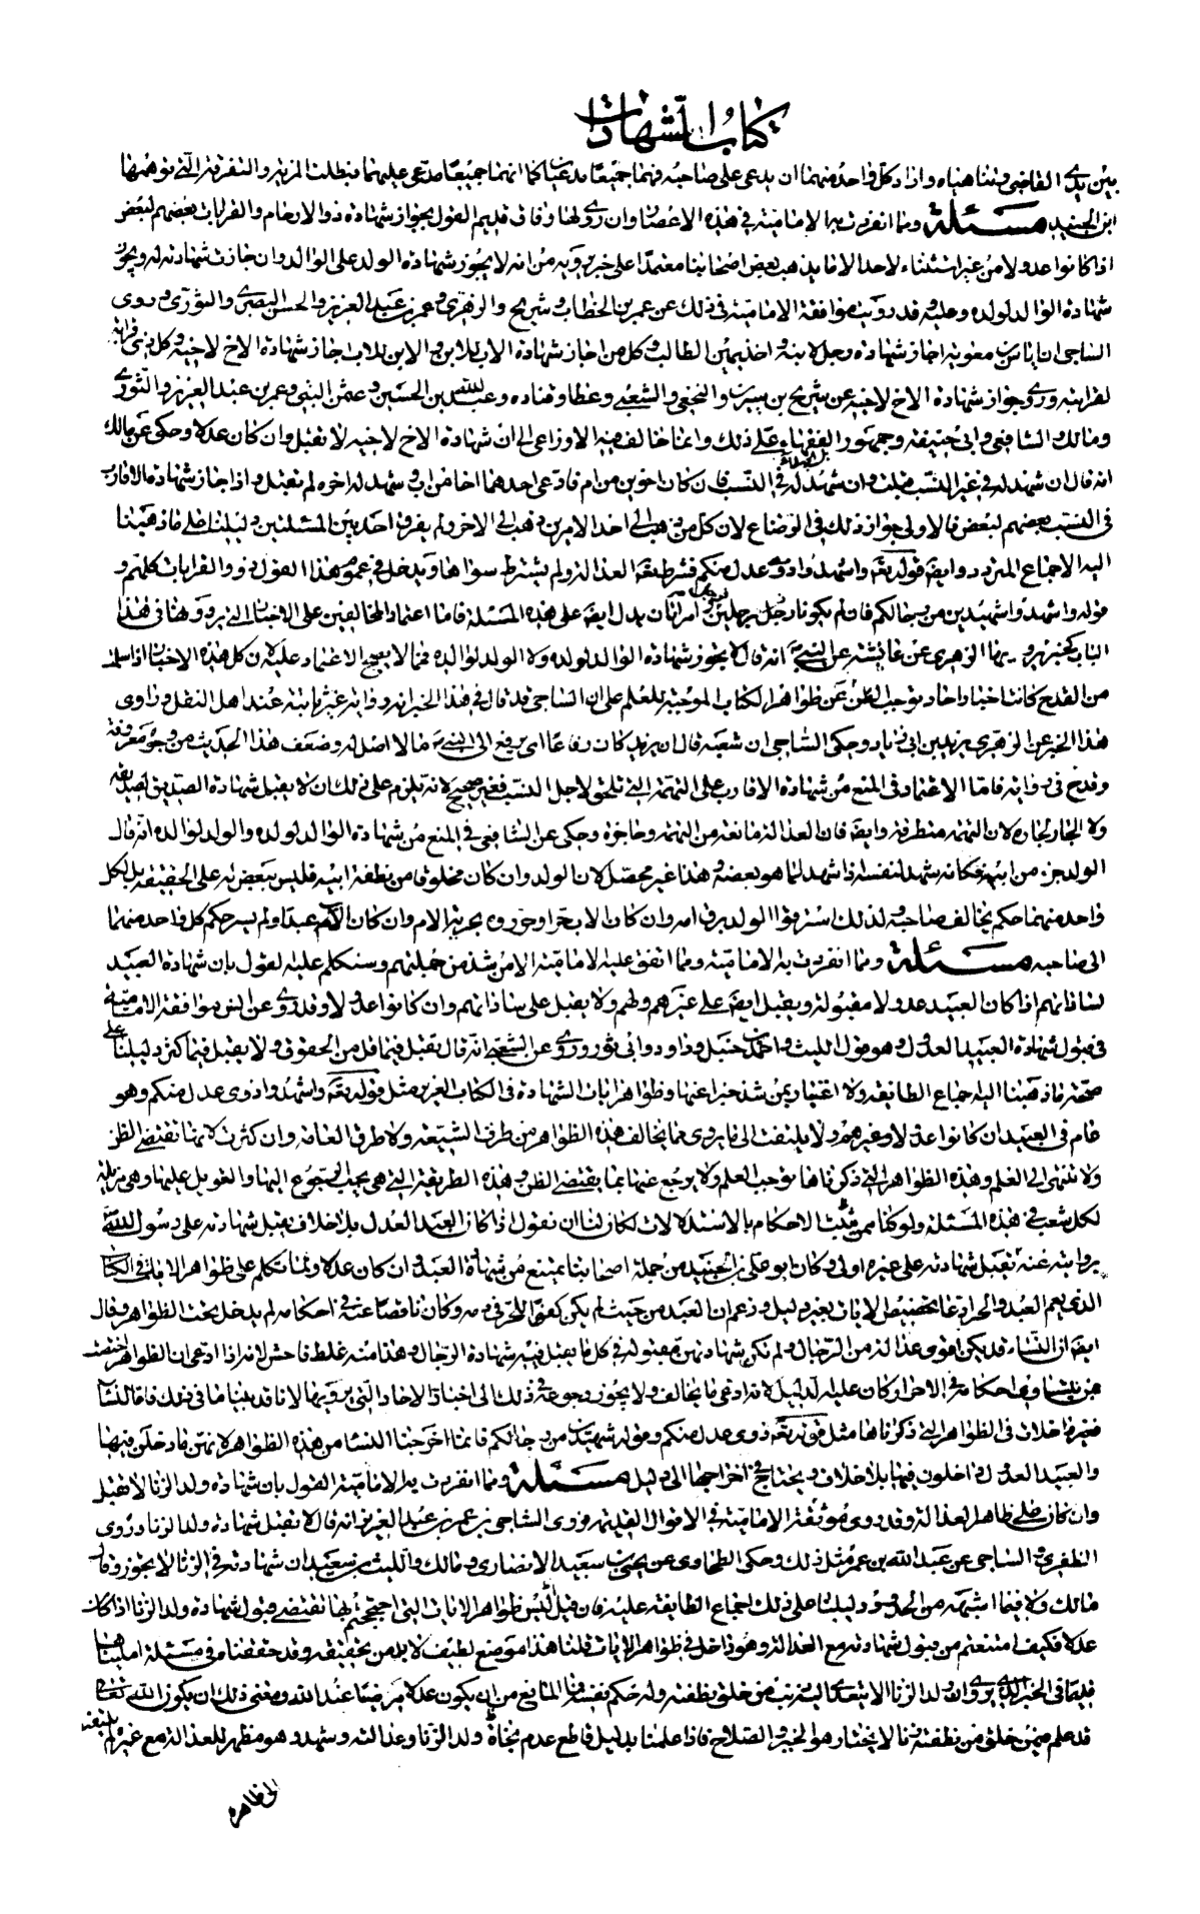 كتاب الشهادات
بين يدي القاضي وتناهياه واذا دكل واحد منهما ان يدعى على صاحبه فهما جميعًا مدعيا كما انهما جميعًا مدعى عليهما فبطلت المزية والتفرقة التي توهمها
ابن الجنيد مسئلة ومما انفردت به الامامية في هذه الاعصار وان روى لها وفاق قديم القول بجواز شهادة ذوى الارحام والقرابات بعضهم لبعض
اذا كانوا عدولا من غير استثناء لاحد الا ما يذهب بعض اصحابنا معتمدًا على خبر يرويه من انه لا يجوز شهادة الولد على الوالد وان جازت شهادته له ويجوز
شهادة الوالد لولده وعليه وقد رويت موافقة الامامية في ذلك عن عمر بن الخطاب وشريح والزهرى وعمر بن عبد العزيز والحسن البصرى والثورى وروى
الساجى ان اياس بن معوية اجاز شهادة رجل لابنه واخذ يمين الطالب وكل من اجاز شهادة الاب للابن والابن للاب جاز شهادة الاخ لاخيه وكل ذى قرابة
لقرابته وروى جواز شهادة الاخ لاخيه عن شريح بن سيرين والنخعى والشعبى وعطا وقتاده وعبد الله بن الحسين وعثمن البتى وعمر بن عبد العزيز والثورى
ومالك والشافعى وابى حنيفة وجمهور الفقهاء على ذلك وانما خالف فيه الاوزاعى الى ان شهادة الاخ لاخيه لا تقبل وان كان عدلا وحكى عن مالك
انه قال ان شهد له في غير النسب قبلت وان شهد له في النسب فان كان اخوين من ام فادعى احدهما اخا من اب وشهد له اخره لم تقبل واذا جاز شهادة الاقارب
في النسب بعضهم لبعض فالاولى جواز ذلك في الرضاع لان كل من ذهب الى احد الامرين ذهب الى الاخر ولم يفرق احد بين المسئلتين دليلنا على ما ذهبنا
اليه الاجماع المتردد وايضًا قوله تعالى واشهدوا ذوى عدل منكم فشرط تعالى العدالة ولم يشترط سواها ويدخل في عموم هذا القول ذوو القرابات كلهم و
قوله واستشهدوا شهيدين من رجالكم فان لم يكونا رجلين فرجل وامراتان يدل ايضًا على هذه المسئلة فاما اعتماد المخالفين على الاخبار التي يروونها في هذا
الباب كخبر يرويها الزهرى عن عايشة عن النبى انه قال لا يجوز شهادة الوالد لولده ولا الولد لوالده فمما لا يصح الاعتماد عليه لان كل هذه الاخبار اذا سلمت
من القدح كانت اخبار احاد يوجب الظن عن ظواهر الكتاب الموجبة للعلم على ان الساجى قد قال في هذا الخبر انه رواية غير ثابتة عند اهل النقل وراوى
هذا الخبر عن الزهرى يزيد بن ابى زياد وحكى الساجى ان شعبه قال ان يزيد كان رفاعًا اى يرفع الى النبى ما لا اصل له وضعف هذا الحديث من وجوه معروفة
وقدح في رواته فاما الاعتماد في المنع من شهادة الاقارب على التهمة التي تلحق لاجل النسب فغير صحيح لانه يلزم على ذلك ان لا يقبل شهادة الصديق لصديقه
ولا الجار لجاره لان التهمة متطرقة وايضًا فان العدالة مانعة من التهمة وحاجزة وحكى عن الشافعى في المنع من شهادة الوالد لولده والولد لوالده انه قال
الولد جزء من ابيه فكانه شهد لنفسه اذا شهد لما هو بعضه وهذا غير محصل لان الولد وان كان مخلوقا من نطفة ابيه فليس ببعض له على الحقيقة بل لكل
واحد منهما حكم يخالف صاحبه ولذلك استرقوا الولد برق امه وان كان الاب حرًا وحرروه بحرية الام وان كان الاب عبدا ولم يسر حكم كل واحد منهما
الى صاحبه مسئلة ومما انفردت به الامامية ومما اتفق عليه الامامية الا من شذ من جملتهم وسنتكلم عليه القول بان شهادة العبيد
لساداتهم اذا كان العبيد عدولا مقبولة ويقبل ايضًا على غيرهم ولهم ولا يقبل على ساداتهم وان كانوا عدولا وقد روى عن انس موافقة الامامية
في قبول شهادة العبيد العدول وهو قول الليث واحمد بن حنبل وداود وابى ثور وروى عن الشعبى انه قال يقبل فيما قل من الحقوق ولا يقبل فيما كثر دليلنا على
صحة ما ذهبنا اليه اجماع الطايفة ولا اعتبار بمن شذ خبرا عنها وظواهر ايات الشهادة في الكتاب العزيز مثل قوله تعالى واشهدوا ذوى عدل منكم وهو
عام في العبيد ان كانوا عدولا وغيرهم ولا يلتفت الى ما يروى مما يخالف هذه الظواهر من طرق الشيعة ولا طرق العامة وان كثرت لانها تقتضى الظن
ولا تنتهى الى العلم وهذه الظواهر التي ذكرناها توجب العلم ولا يرجع عنها بما يقتضى الظن وهذه الطريقة التي هي يجب الرجوع اليها والتعويل عليها وهى مزيلة
لكل شعب في هذه المسئلة ولو كنا ممن يثبت الاحكام بالاستدلالات لكان لنا ان نقول اذا كان العبد العدل بلا خلاف يقبل شهادته على رسول الله
بروايته عنه تقبل شهادته على غيره اولى وكان ابو على بن الجنيد من جملة اصحابنا يمتنع من شهادة العبد وان كان عدلا ولما تكلم على ظواهر الايات في الكتاب
الذى يعم العبد والحر ادعا تخصيص الايات بغير دليل وزعم ان العبد من حيث لم يكن كفوا للحر في دمه وكان ناقصًا عنه في احكامه لم يدخل تحت الظواهر وقال
ايضًا ان النساء قد يكن اقوى عدالة من الرجال ولم تكن شهادتهن مقبولة في كل ما يقبل فيه شهادة الرجال وهذا منه غلط فاحش لانه اذا ادعى ان الظواهر اختصت
بمن يتساوى احكامه في الاحرار كان عليه الدليل لانه ادعى ما يخالف ولا يجوز رجوعه في ذلك الى اخبار الاحاد التي يرويها لانا قد بينا ما في ذلك فاما النسآ
فغير داخلات في الظواهر التي ذكرناها مثل قوله تعالى ذوى عدل منكم وقوله شهيدين من رجالكم فانما اخرجنا النسا من هذه الظواهر لانهن ما دخلن فيها
والعبيد العدول داخلون فيها بلا خلاف ويحتاج في اخراجها الى دليل مسئلة ومما انفردت به الامامية القول بان شهادة ولد الزنا لا تقبل
وان كان على ظاهر العدالة وقد روى موافقة الامامية في الاقوال القديمة فروى الساجى عن عمر بن عبد العزيز انه قال لا تقبل شهادة ولد الزنا وروى
الطبرى والساجى عن عبد الله بن عمر مثل ذلك وحكى الطحاوى عن يحيى بن سعيد الانصارى ومالك والليث بن سعد ان شهادته في الزنا لا يجوز وقال
مالك ولا فيما اشبهه من الحدود دليلنا على ذلك اجماع الطايفة عليه فان قيل اليس ظواهر الايات التي احتججتم بها تقتضى قبول شهادة ولد الزنا اذا كان
عدلا فكيف امتنعتم من قبول شهادته مع العدالة وهو داخل في ظواهر الايات قلنا هذا موضع لطيف لا بد من تحقيقه وقد حققناه في مسئلة امليناها
قلنا في الخبر الذى يروى ان ولد الزنا لا ينجب من خلق نطفته وله حكم نفسه فما المانع من ان يكون عدلا مرضيًا عند الله ومعنى ذلك ان يكون الله تعالى
قد علم فيمن خلق من نطفة زنا لا يختار هو الخير والصلاح فاذا علمنا بدليل قاطع عدم نجاة ولد الزنا وعدالته وشهد وهو مظهر للعدالة مع غيره لم يلتفت
الى ظاهره